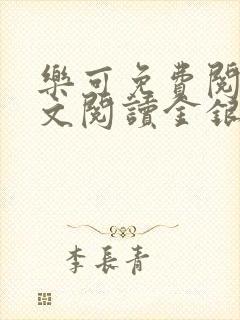 樂可免費閱
文閱讀金銀
李長青